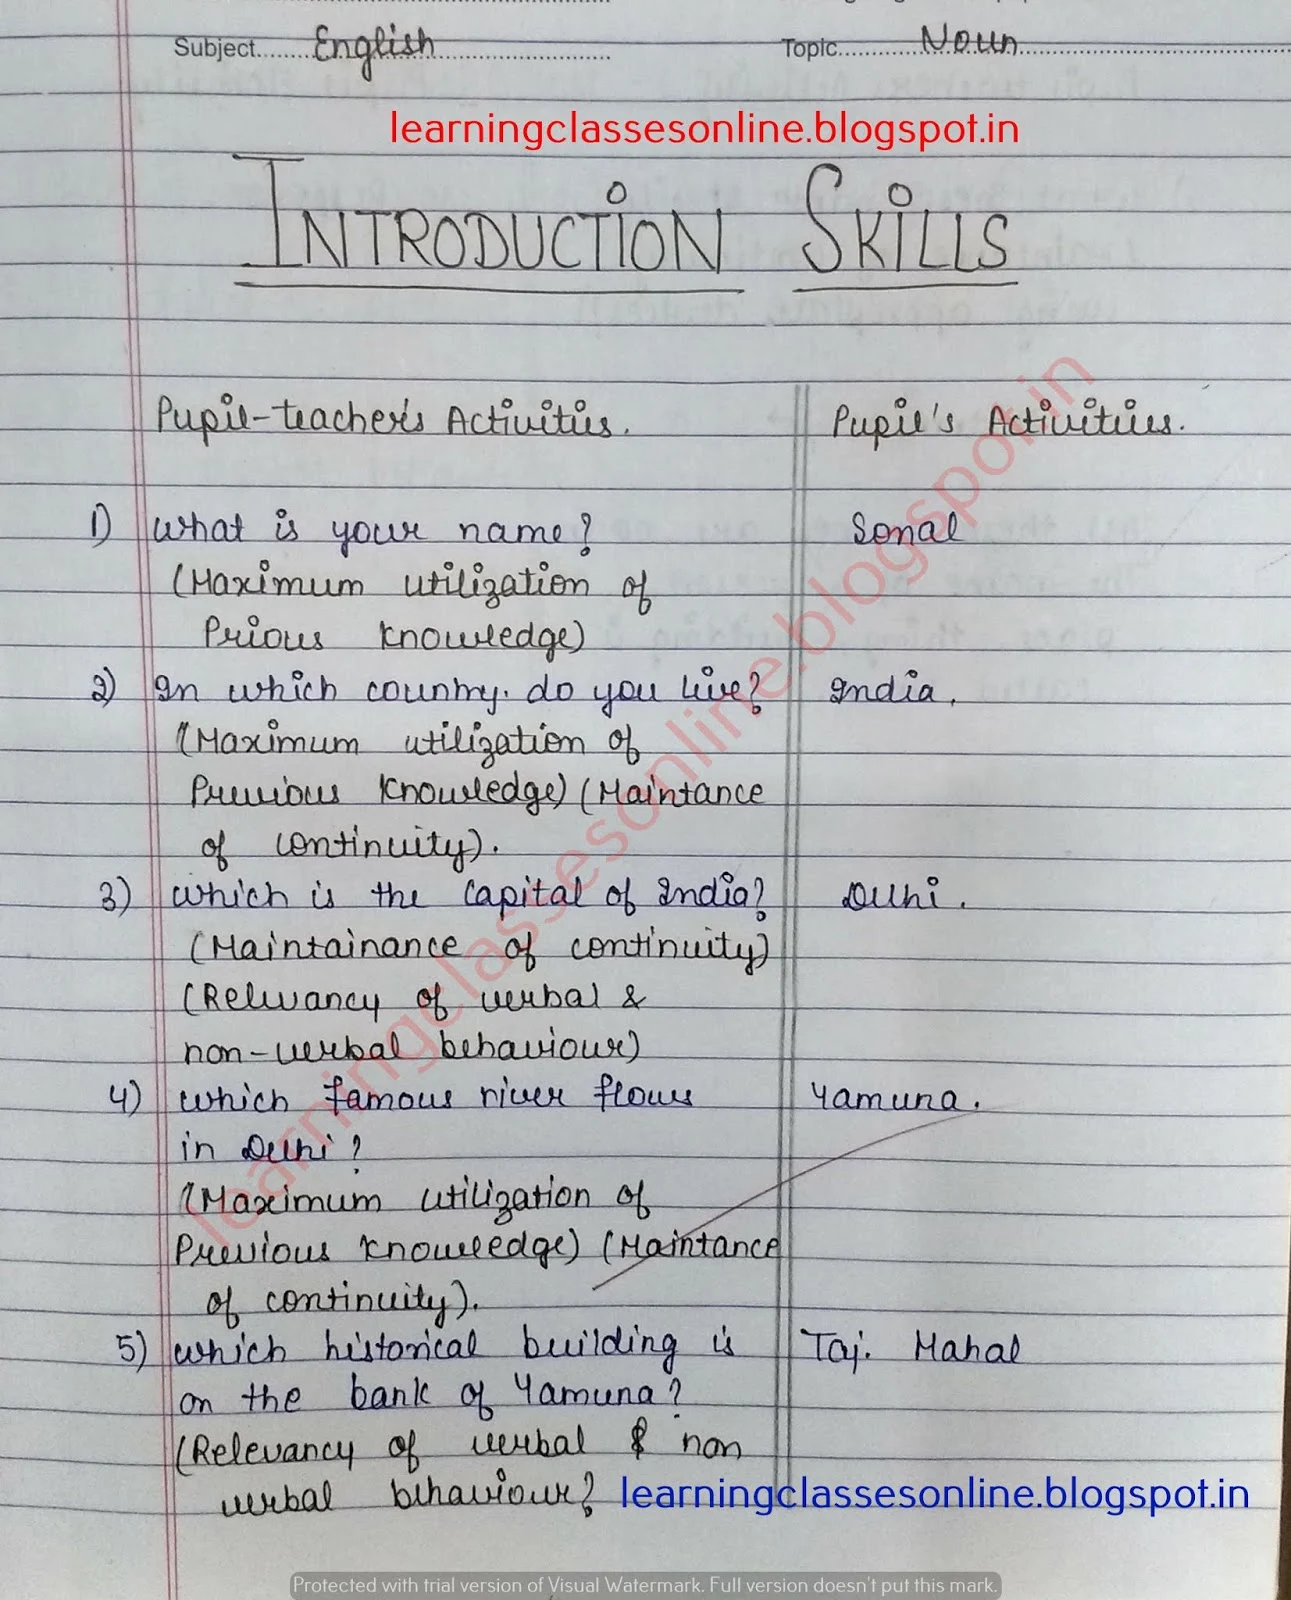 Subject.......English............................ Topic............Noun............................
learningclassesonline.blogspot.in
INTRODUCTION SKILLS
Pupil-teacher's Activities. Pupil's Activities.
1) What is your name? Sonal
(Maximum utilization of
Prious knowledge)
2) In which country. do you live? India.
(Maximum utilization of
Previous knowledge) (Maintance
of continuity).
3) which is the capital of India? Delhi.
(Maintainance of continuity)
(Relevancy of verbal &
non-verbal behaviour)
4) which famous river flows Yamuna.
in Delhi?
(Maximum utilization of
Previous knowledge) (Maintance
of continuity).
5) which historical building is Taj. Mahal
on the bank of Yamuna?
(Relevancy of verbal & non
verbal behaviour? learningclassesonline.blogspot.in
learningclassesonline.blogspot.in
Protected with trial version of Visual Watermark. Full version doesn't put this mark.